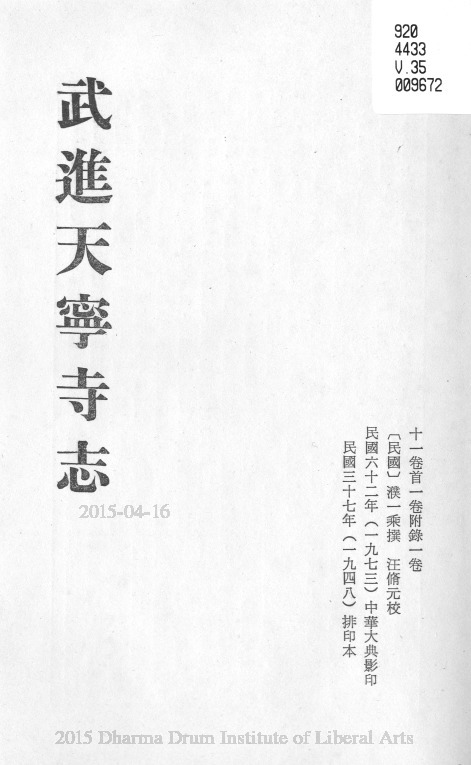 920
4433
V.35
009672
武進天寧寺志
2015-04-16
十一卷首一卷附錄一卷
〔民國〕濮一乘撰　汪脩元校
民國六十二年（一九七三）中華大典影印
民國三十七年（一九四八）排印本
2015 Dharma Drum Institute of Liberal Arts